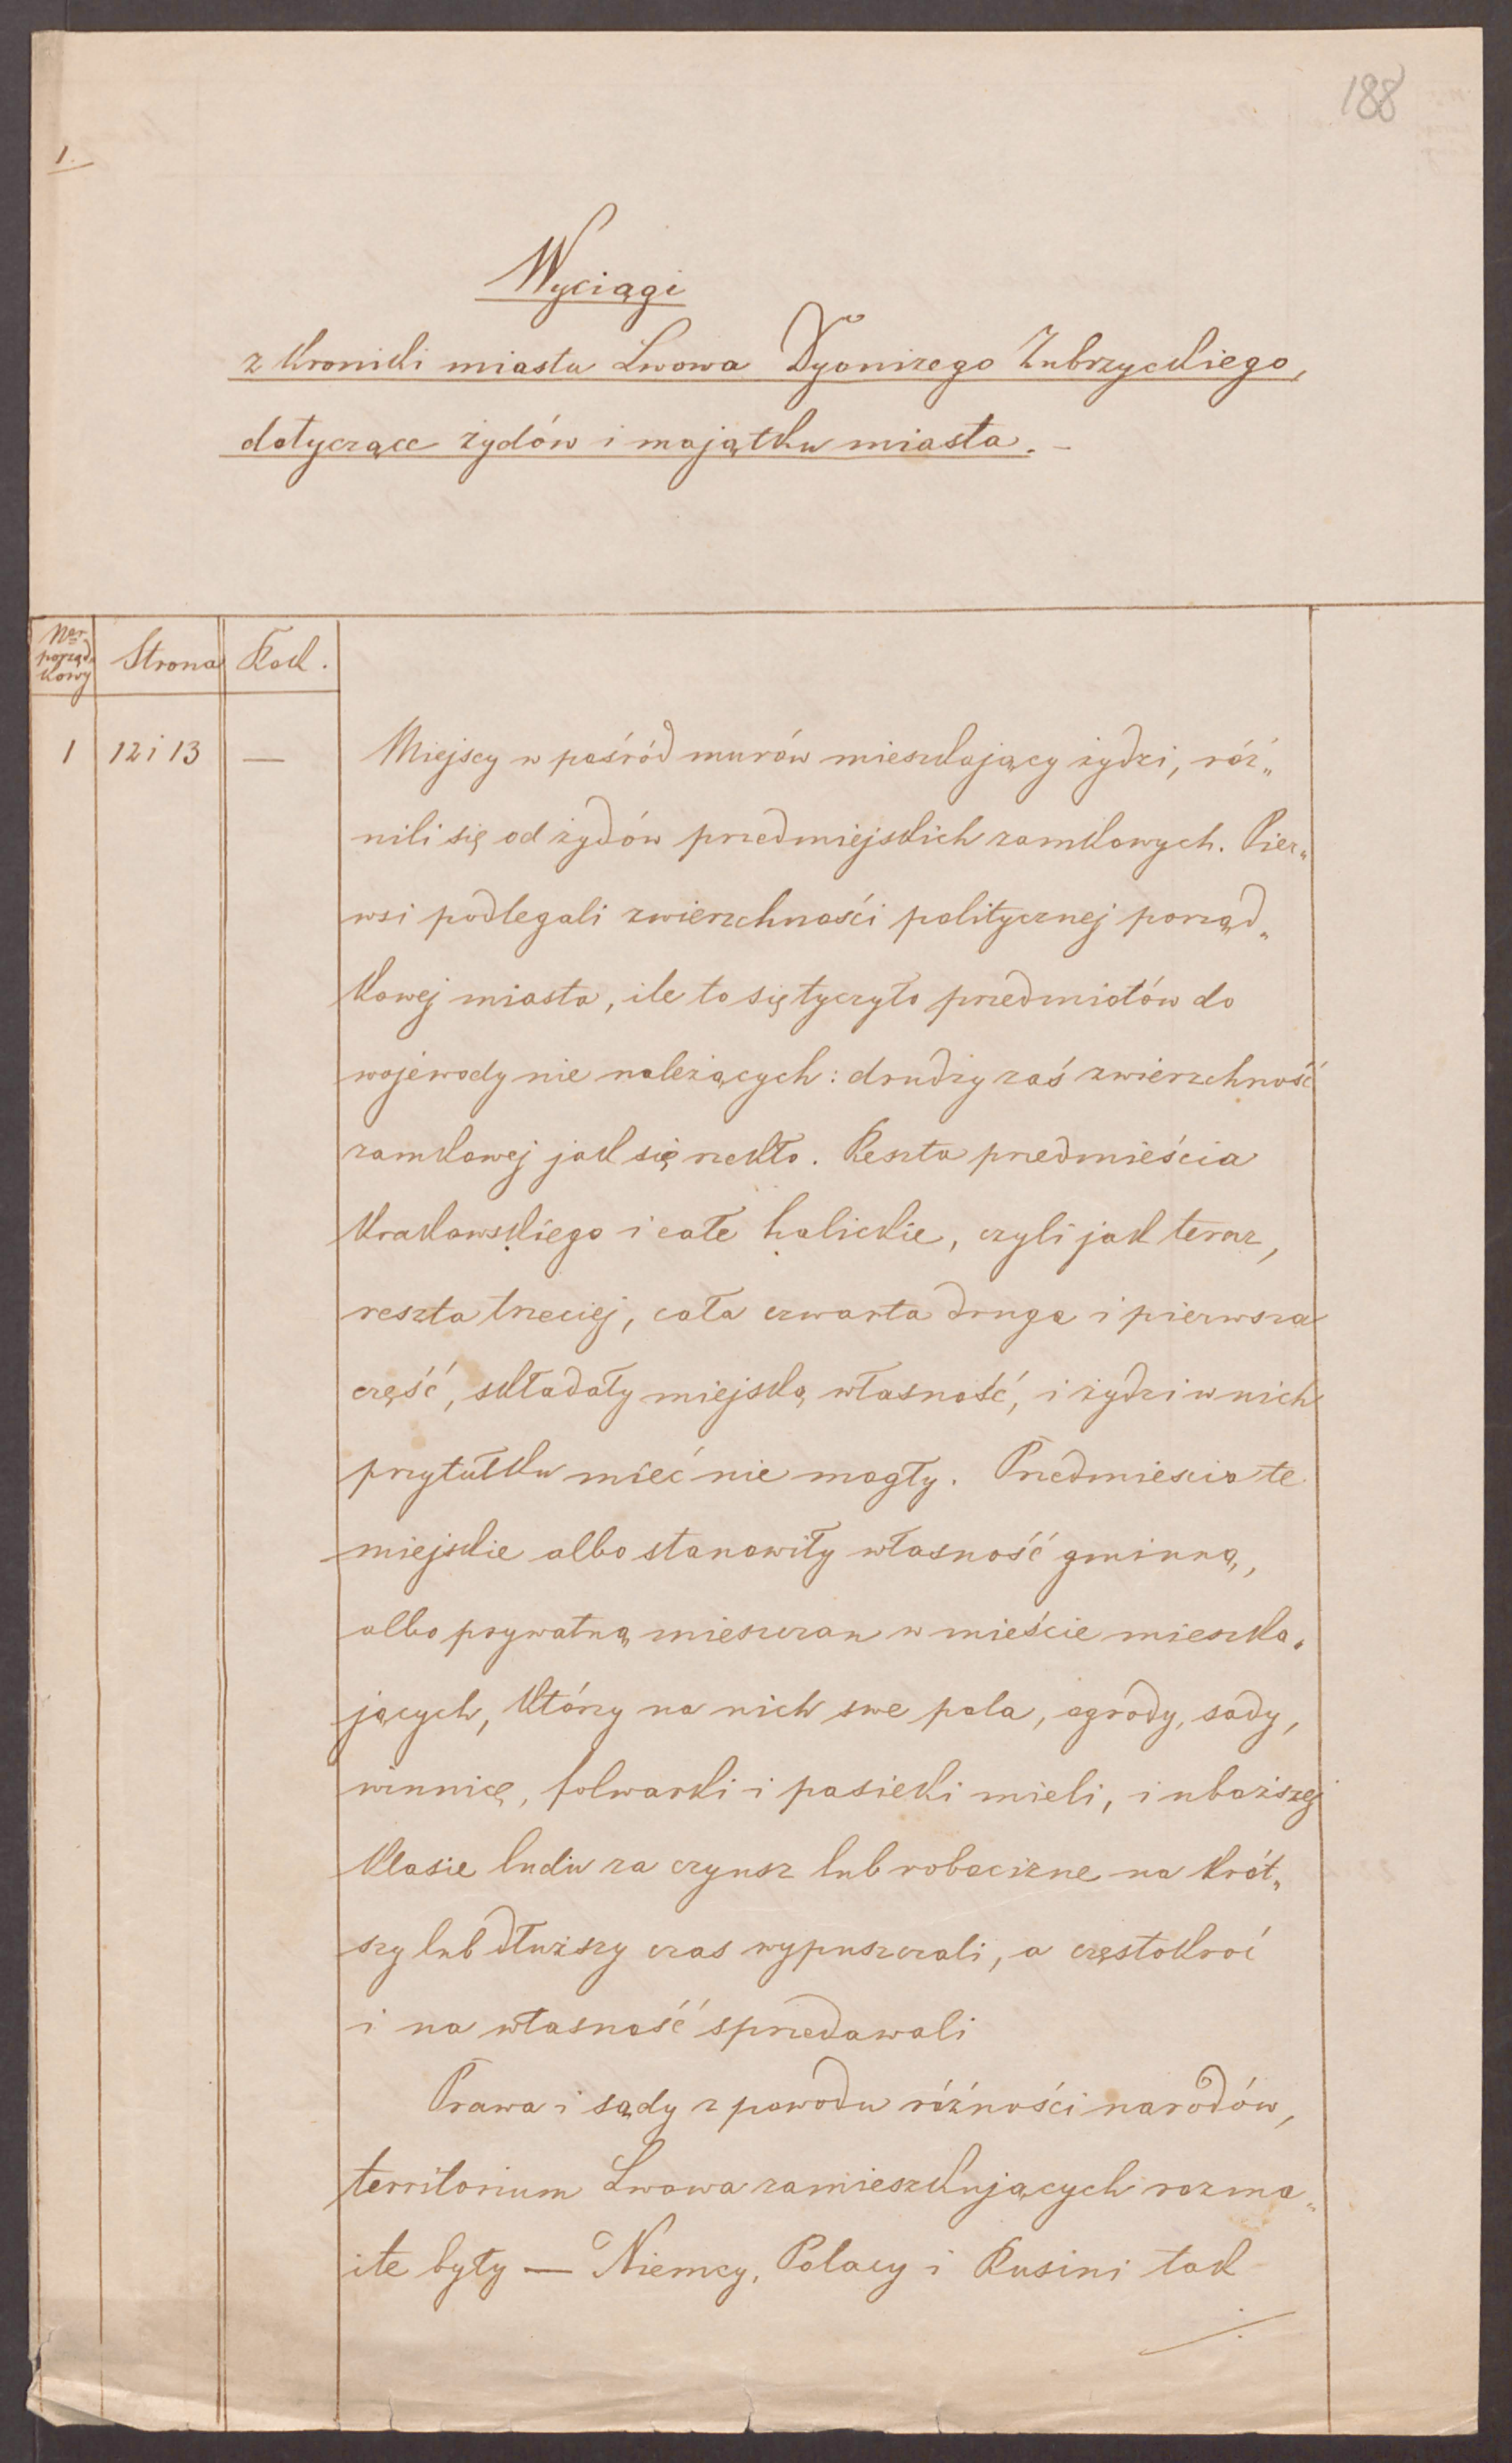 188
1.
Wyciągi
z kroniki miasta Lwowa Dyonizego Zubrzyckiego,
dotyczące żydów i majątku miasta. –
Ner. porząd. kowy
Strona
Rok.
1
12 i 13
—
Miejscy w pośród murów mieszkający żydzi, róż„
nili się od żydów przedmiejskich zamkowych. Pier„
wsi podlegali zwierzchności politycznej porząd„
kowej miasta, ile to się tyczyło przedmiotów do
wojewody nie należących: drudzy zaś zwierzchność
zamkowej jak się rzekło. Reszta przedmieścia
Krakowskiego i całe halickie, czyli jak teraz,
reszta trzeciej, cała czwarta druga i pierwsza
część, składały miejską własność, i żydzi w nich
przytułku mieć nie mogły. Przedmiescia te
miejskie albo stanowiły własność gminną,
albo prywatną mieszczan w mieście mieszka„
jących, którzy na nich swe pola, ogrody, sady,
winnice, folwarki i pasieki mieli, i uboższej
klasie ludu za czynsz lub robocizne na krót„
szy lub dłuższy czas wypuszczali, a częstokroć
i na własność sprzedawali
Prawa i sądy z powodu różności narodów,
territorium Lwowa zamieszkujących rozma„
ite były — Niemcy, Polacy i Rusini tak
./.